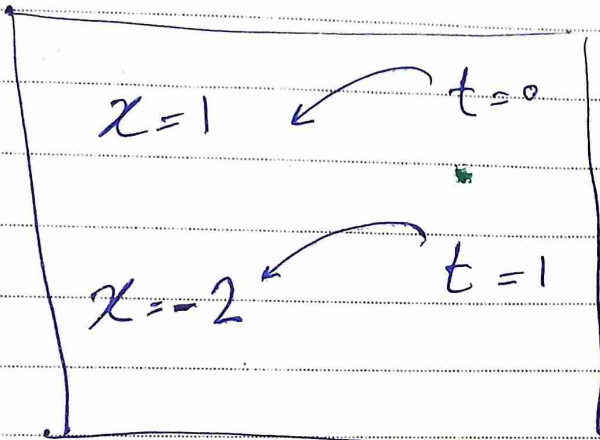 x = 1 t = 0
x = -2 t = 1